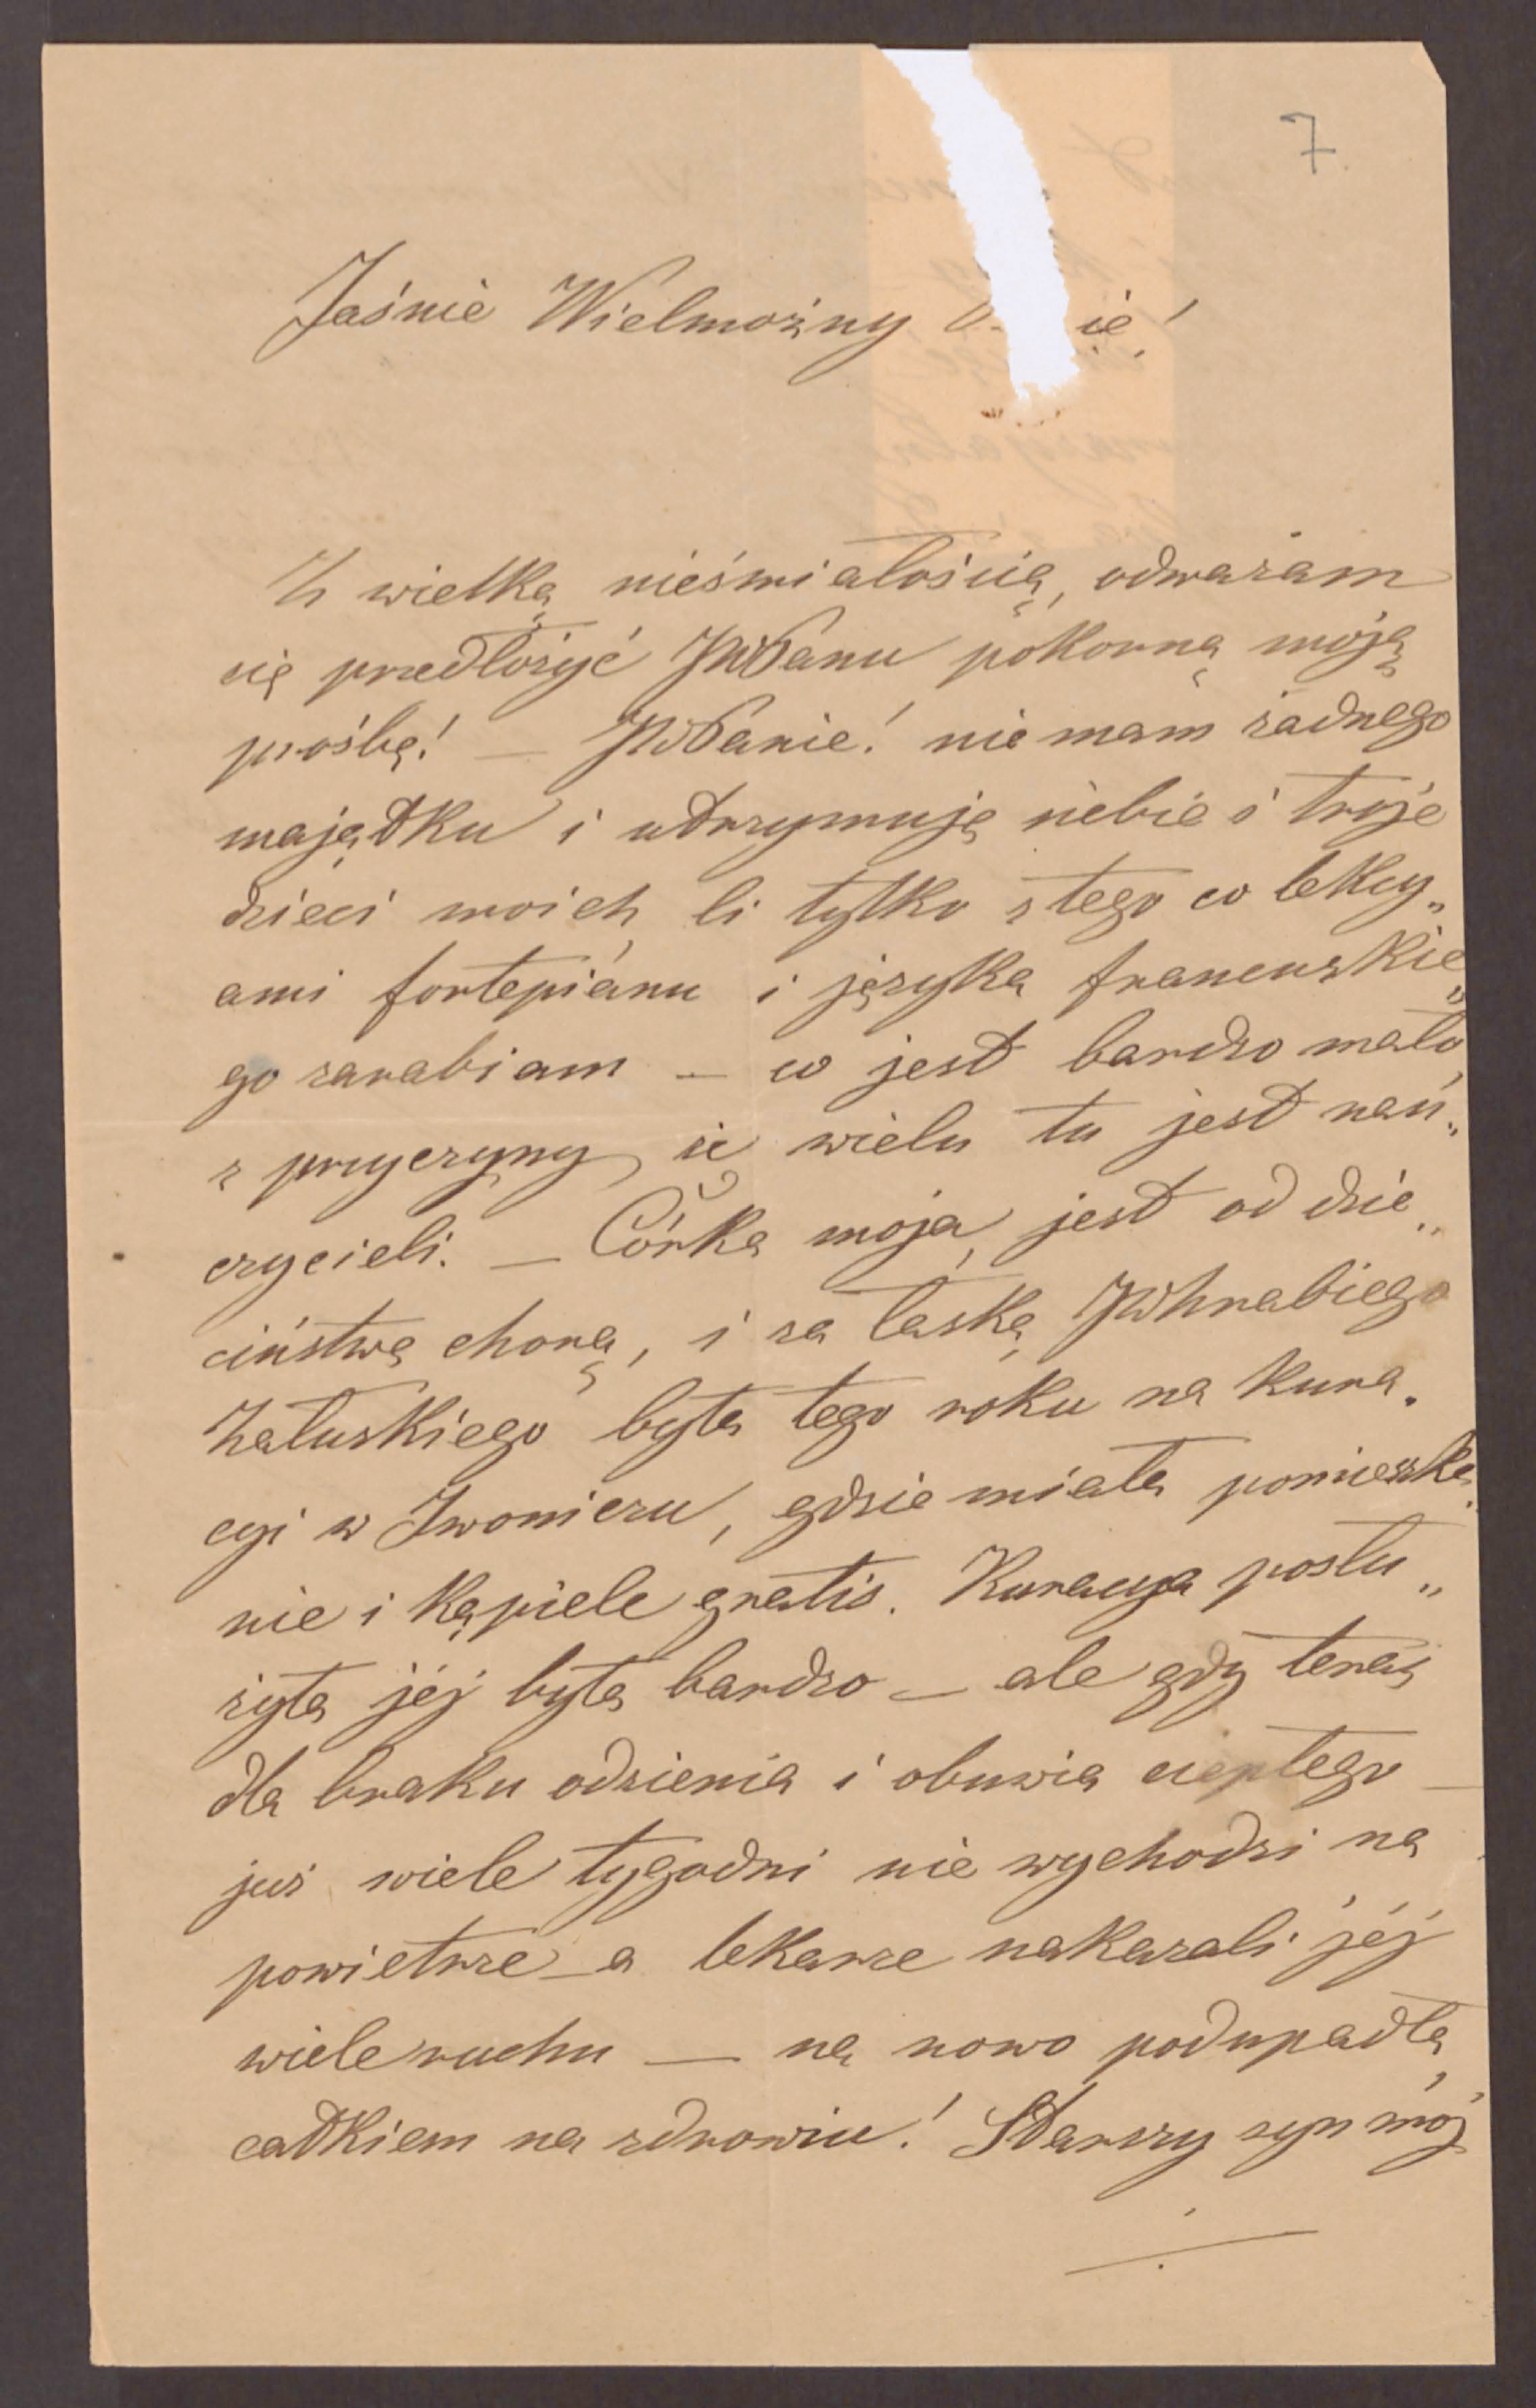 7.
Jaśnie Wielmożny ie!
Z wielką nieśmiałością, odważam
się przedłożyć JWPanu pokorną moją
prośbę! — JWPanie! nie mam żadnego
majątku i utrzymuję siebie i troje
dzieci moich li tylko z tego co lekcy„
ami fortepianu i języka francuskie„
go zarabiam — co jest bardzo mało,
z przyczyny, iż wielu tu jest nau„
czycieli. — Córka moja, jest od dzie„
ciństwa chorą, i za łaską JWhrabiego
Załuskiego była tego roku na kura„
cyi w Iwoniczu, gdzie miała pomieszka„
nie i kąpiele gratis. Kuracya posłu„
żyła jéj była bardzo — ale gdy teraz
dla braku odzienia i obuwia ciepłego —
już wiele tygodni nie wychodzi na
powietrze — a lekarze nakazali jéj
wiele ruchu — na nowo podupadła
całkiem na zdrowiu! Starszy syn mój